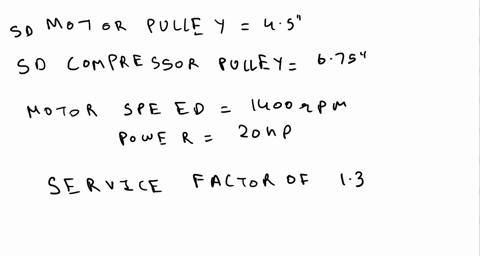 SD MOTOR PULLEY = 4.5"
SD COMPRESSOR PULLEY = 6.75"
MOTOR SPEED = 1400 rpm
POWER = 20 hp
SERVICE FACTOR OF 1.3